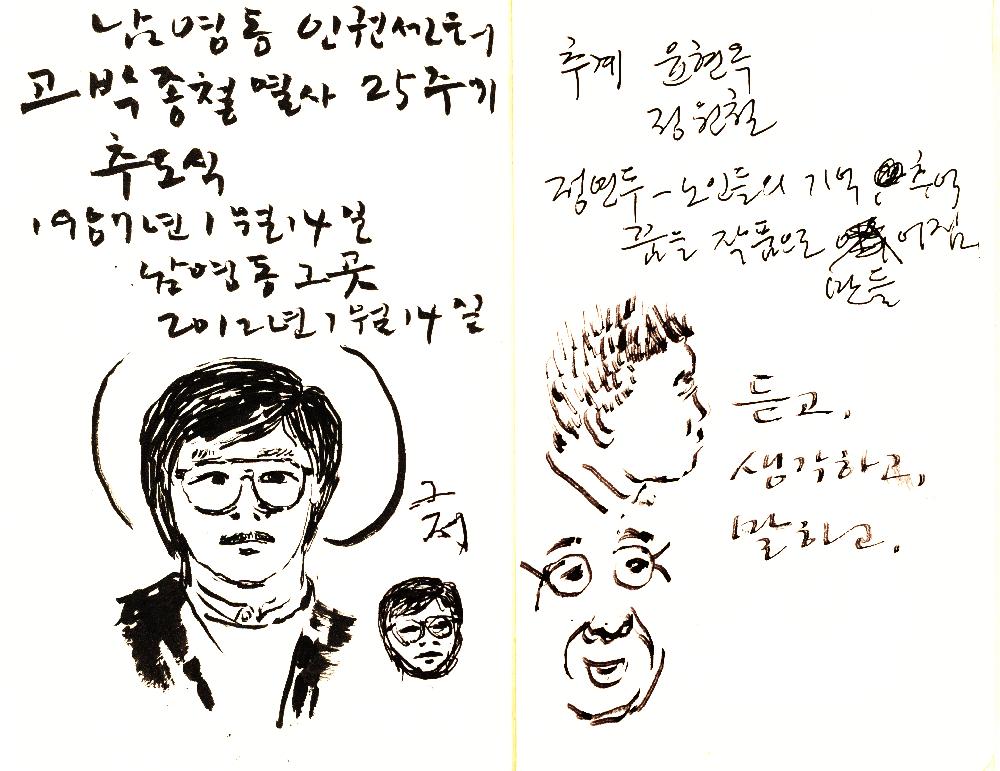 남영동 인권센터
고 박종철 열사 25주기
추도식
1987년 1월 14일
남영동 그곳
2012년 1월 14일
추계 윤현주
정원철
정연두 - 노인들의 기억 추억
꿈을 작품으로 어짐
만들
듣고,
생각하고,
말하고.